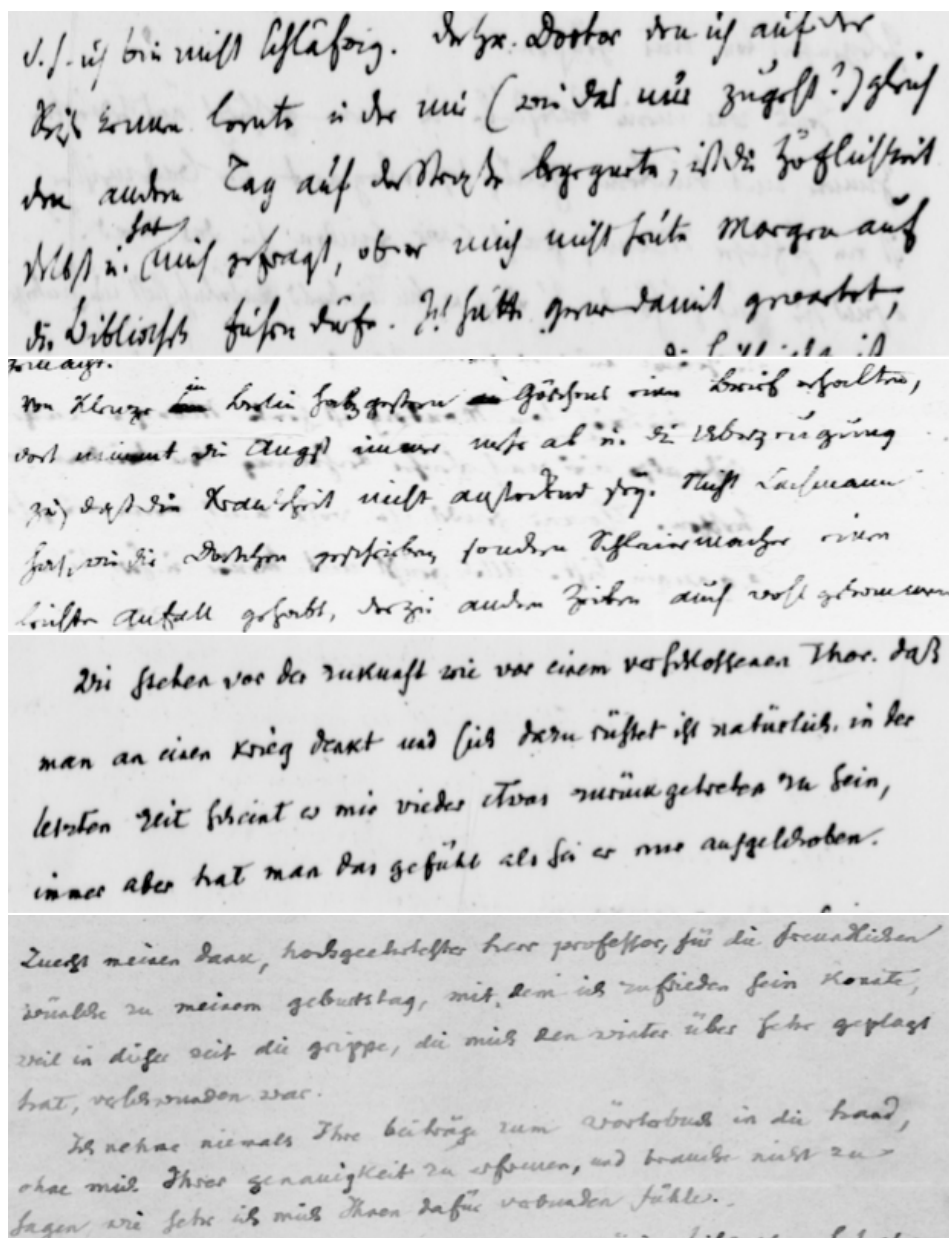 d. h. ich bin nicht schläfrig. Der Hr. Doctor den ich auf der
Reise kennen lernte u. der mir (wie das nur zugeht?) gleich
den andern Tag auf der Straße begegnete, ist die Höflichkeit
selbst u. hat mich gefragt, ob er mich nicht heute Morgen auf
die Bibliothek führen dürfe. Ich hätte gerne damit gewartet,
die Höflichkeit ist
von Klenze in Berlin hab gestern Göschens einen Brief erhalten,
dort nimmt die Angst immer mehr ab u. die Überzeugung
zu, daß die Krankheit nicht ansteckend sey. Nicht Lachmann
hat, wie die Dortchen geschrieben sondern Schleiermacher einen
leichten Anfall gehabt, der zu andern Zeiten auch wohl gekommen
Wir stehen vor der zukunft wie vor einem verschlossenen Thor. daß
man an einen krieg denkt und sich dazu rüstet ist natürlich. in der
letzten zeit scheint er mir wieder etwas zurück getreten zu sein,
immer aber hat man das gefühl als sei er nur aufgeschoben.
Zuerst meinen dank, hochgeehrtester herr professor, für die freundlichen
wünsche zu meinem geburtstag, mit dem ich zufrieden sein konnte,
weil in dieser zeit die grippe, die mich den winter über sehr geplagt
hat, verschwunden war.
Ich nehme niemals Ihre beiträge zum wörterbuch in die hand,
ohne mich Ihrer genauigkeit zu erfreuen, und brauche nicht zu
sagen wie sehr ich mich Ihnen dafür verbunden fühle.